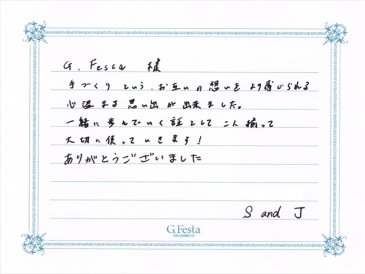 G. Festa 様
手づくり という、お互いの想いをより感じられる
心温まる思い出が出来ました。
一緒に歩んでいく証として二人揃って
大切に使っていきます！
ありがとうございました
S and J
G.Festa